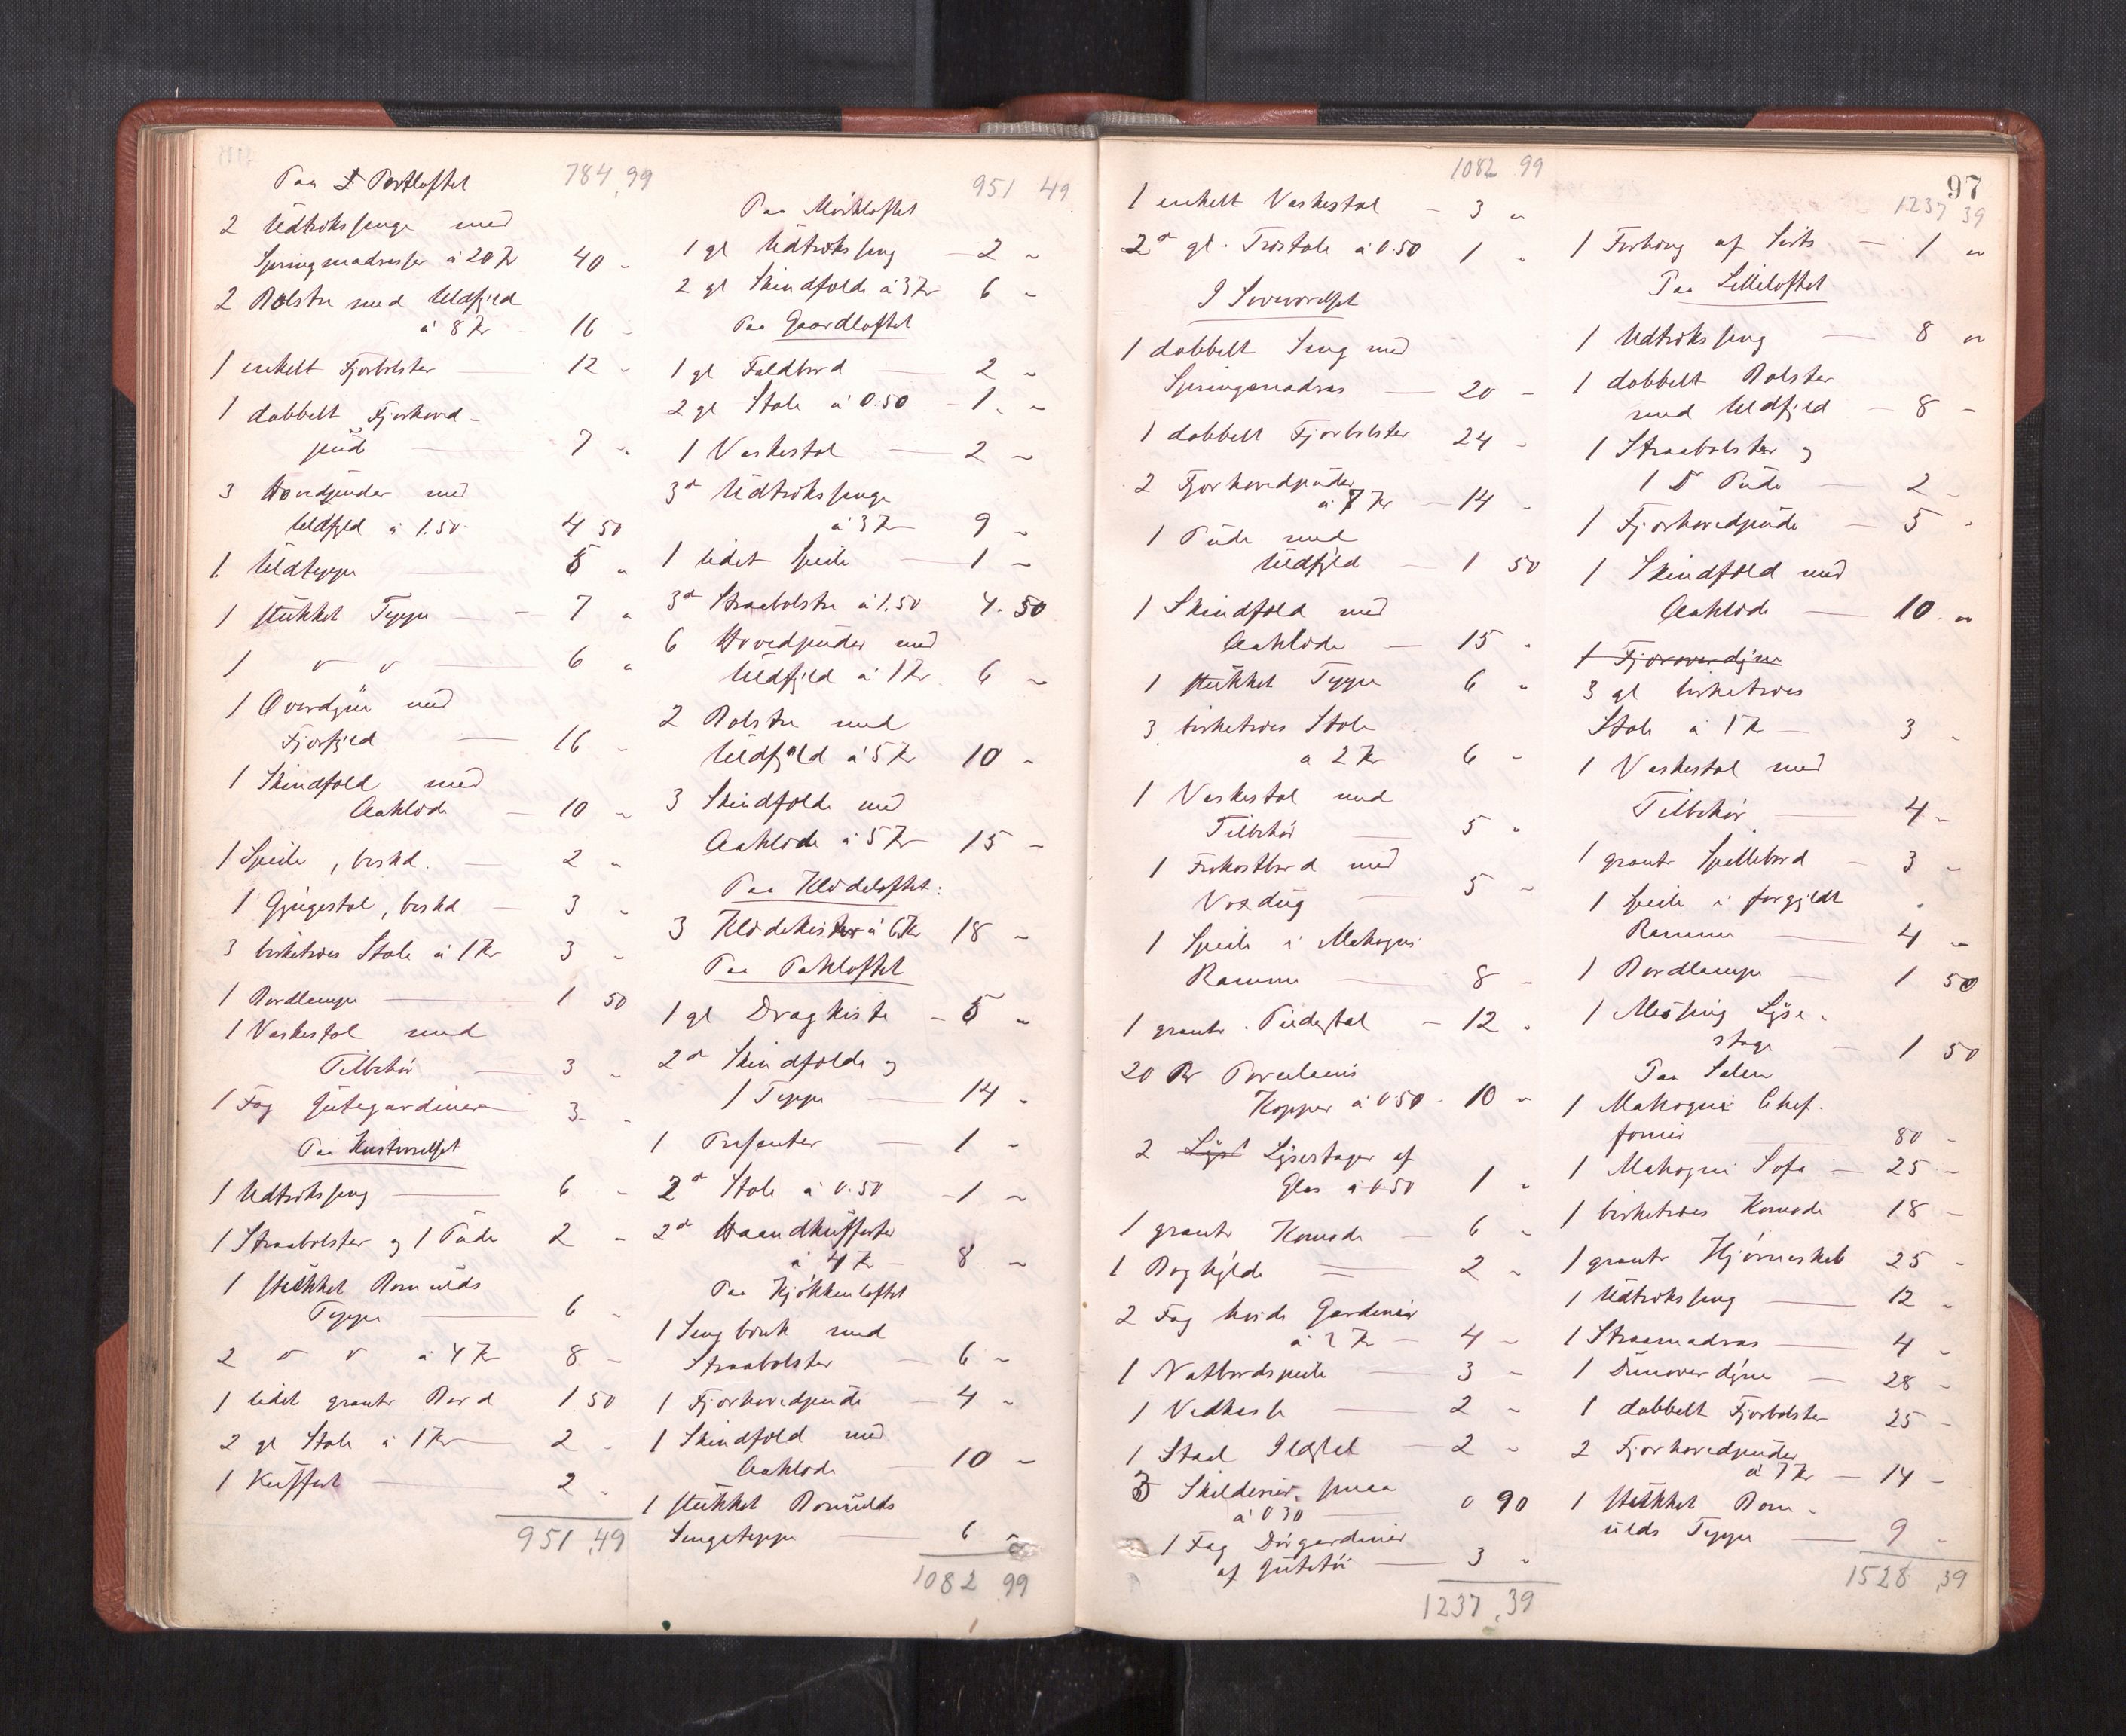 Paa Portloftet 784,99
2 Udtrækssenge med
Springmadrasser à 20 Kr 40 -
2 Bolstre med Uldfyld
à 8 Kr - 16 -
1 enkelt Fjærbolster 12 -
1 dobbelt Fjærhoved-
pude 7 -
3 Hovedpuder med
Uldfyld à 1.50 4 50
1 Uldteppe 5 -
1 stukket Teppe - 7 -
1 do do 6 -
1 Overdyne med
Fjærfyld 16 -
1 Skindfeld med
Aaklæde - 10 -
1 Speile, beskd. - 2 -
1 Gyngestol, beskd - 3 -
3 birketræs Stole à 1 Kr 3 -
1 Bordlampe 1 50
1 Vaskestol med
Tilbehør 3 -
1 Fag Jutegardiner 3 -
1 Udtræksseng 6 -
1 Straabolster og 1 Pude 2 -
1 stukket Bomulds
Teppe 6 -
2 do do à 4 Kr 8 -
1 lidet grantr Bord 1.50
2 gl Stole à 1 Kr 2 -
1 Kuffert 2 -
951,49
951 49
Paa Mørkloftet
1 gl Udtræksseng - 2 -
2 gl Skindfelde à 3 Kr 6 -
Paa Gaardloftet
1 gl Foldbord 2 -
2 gl Stole à 0.50 - 1 -
1 Vaskestol 2 -
3 do Udtræksenge
à 3 Kr 9 -
1 lidet Speile 1 -
3 do Straabolstre à 1.50 4.50
6 Hovedpuder med
Uldfyld à 1 Kr 6 -
2 Bolstre med
Uldfyld à 5 Kr 10 -
3 Skindfelde med
Aaklæde à 5 Kr 15 -
Paa Klædeloftet:
3 Klædekister à 6 Kr 18 -
Paa Takloftet
1 gl Dragkiste - 5 -
2 do Skindfelde og
1 Teppe 14 -
1 Presenter 1 -
2 do Stole à 0.50 - 1 -
2 do Haandkufferter
à 4 Kr - 8 -
Paa Kjøkkenloftet
1 Sengbænk med
Straabolster - 6 -
1 Fjærhovedpude - 4 -
1 Skindfeld med
Aaklæde 10 -
1 stukket Bomulds
Sengeteppe 6 -
1082 99
1082 99
1 enkelt Vaskestol - 3 -
2 do gl. Træstole à 0.50 1 -
I Soveværelset
1 dobbelt Seng med
Springmadras 20 -
1 dobbelt Fjærbolster 24 -
2 Fjærhovedpuder
à 7 Kr - 14 -
1 Pude med
Uldfyld - 1 50
1 Skindfeld med
Aaklæde - 15 -
1 stukket Teppe 6 -
3 birketræs Stole
à 2 Kr 6 -
1 Vaskestol med
Tilbehør 5 -
1 Frokostbord med
Voxdug 5 -
1 Speile i Mahogni
Ramme 8 -
1 grantr. Piedestal - 12 -
20 Pr Porcelæns
Kopper à 0.50 - 10 -
2 Lyse Lysestager af
Glas à 0.50 1 -
1 grantr Komode - 6 -
1 Boghylde 2 -
2 Fag hvide Gardiner
à 2 Kr - 4 -
1 Natbordspeile 3 -
1 Vedkasse 2 -
1 Staal Ildstel - 2 -
3 Skilderier, smaa
à 0 30 0 90
1 Fag Dørgardiner
af Jutetøi 3 -
1237,39
97
1237 39
1 Forhæng af Sirts - 1 -
Paa Lilleloftet
1 Udtræksseng 8 -
1 dobbelt Bolster
med Uldfyld - 8 -
1 Straabolster og
1 do Pude 2 -
1 Fjærhovedpude - 5 -
1 Skindfeld med
Aaklæde 10 -
1 Fjæroverdyne
3 gl birketræs
Stole à 1 Kr - 3 -
1 Vaskestol med
Tilbehør 4 -
1 grantr Spillebord - 3 -
1 Speile i forgyldt
Ramme 4 -
1 Bordlampe 1 50
1 Messing Lyse-
stage - 1 50
Paa Salen
1 Mahogni Chef-
fonier 80 -
1 Mahogni Sofa - 25 -
1 birketræs Komode 18 -
1 grantr Hjørneskab 25 -
1 Udtræksseng 12 -
1 Straamadras 4 -
1 Dunoverdyne - 28 -
1 dobbelt Fjærbolster 25 -
2 Fjærhovedpuder
à 7 Kr - 14 -
1 stukket Bom-
ulds Teppe 9 -
1528,39